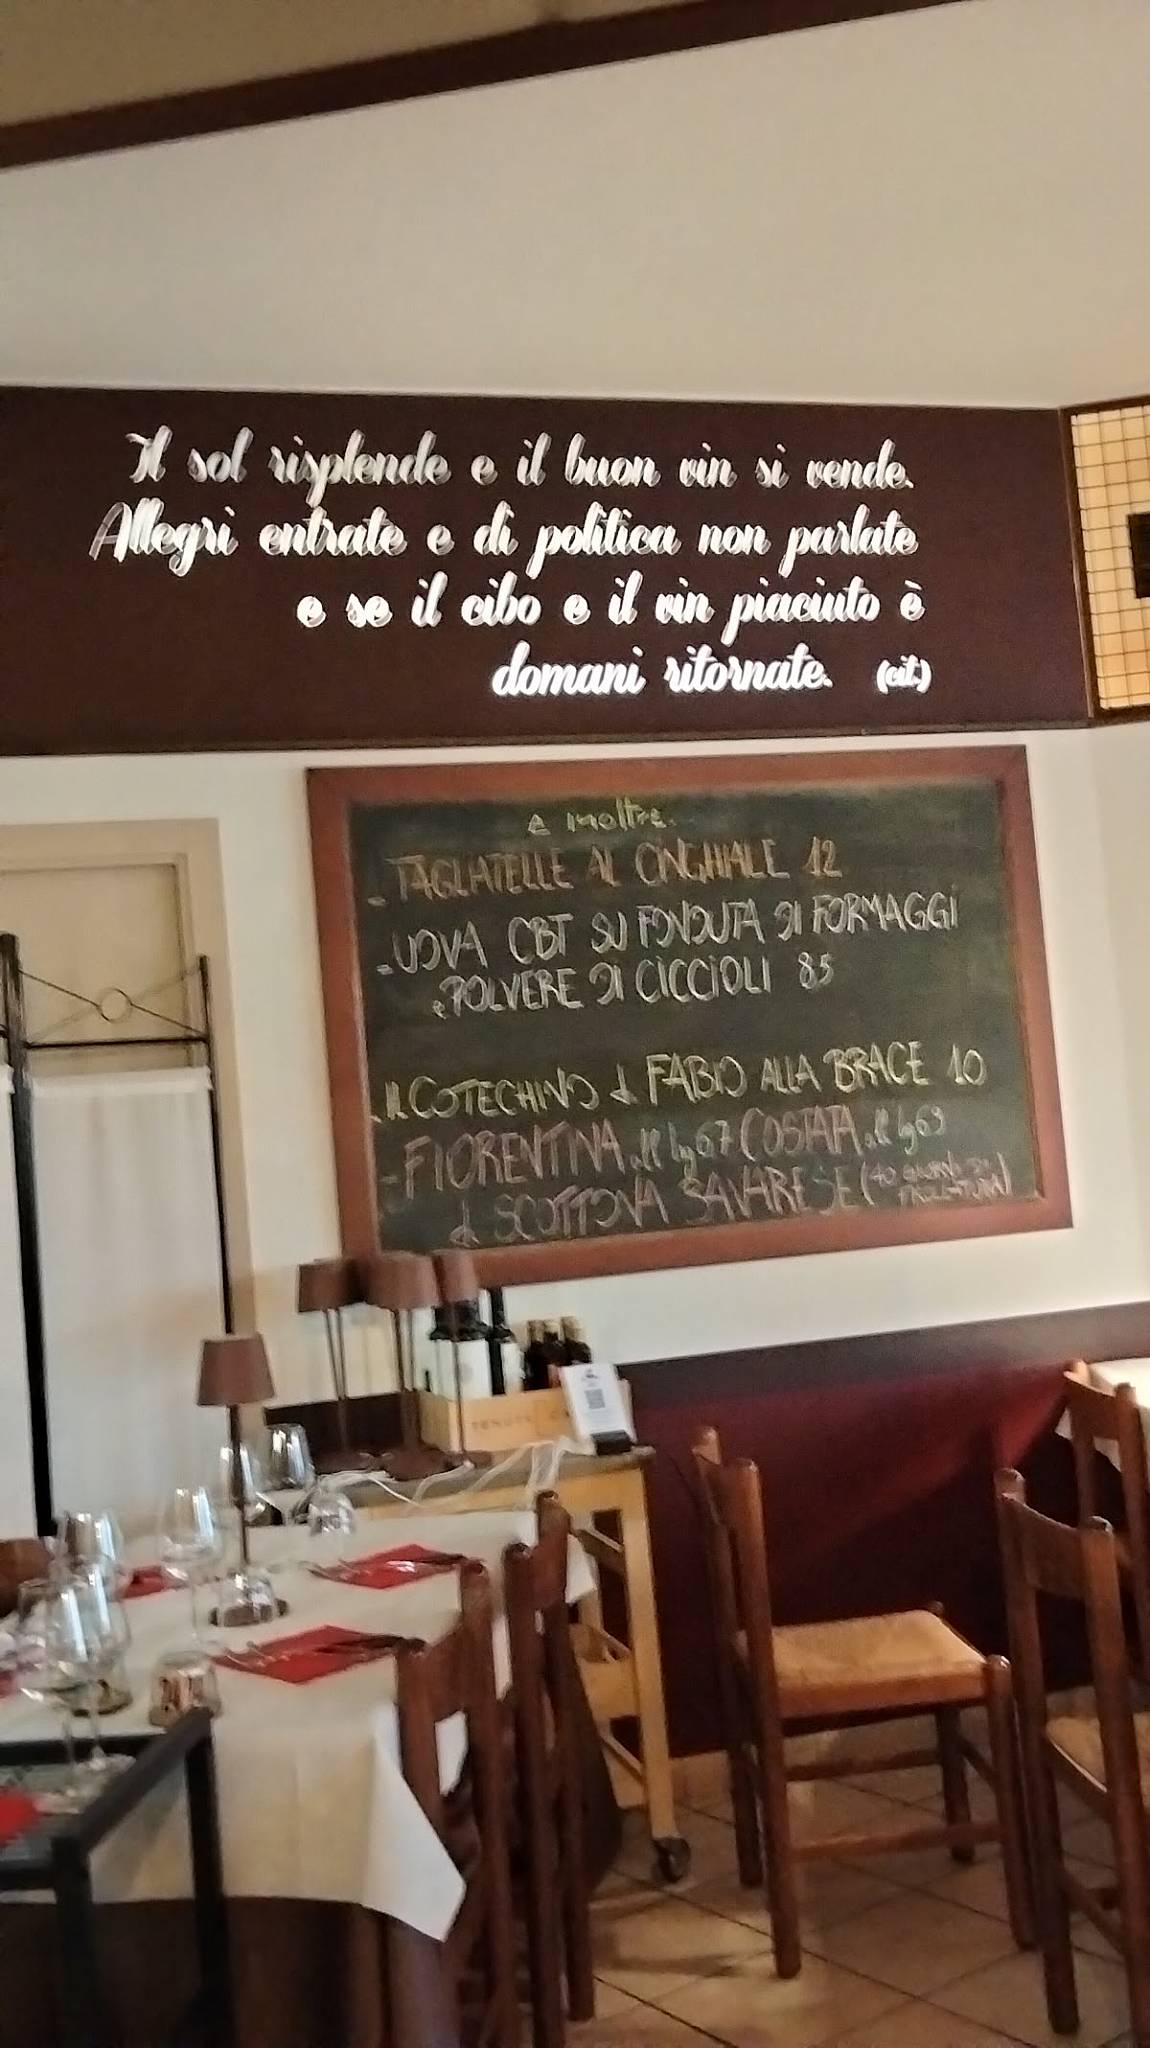 Il sol risplende e il buon vin si vende.
Allegri entrate e di politica non parlate
e se il cibo e il vin piaciuto è
domani ritornate. (cit.)
e inoltre.
- TAGLIATELLE AL CINGHIALE 12
- UOVA CBT SU FONDUTA DI FORMAGGI
e POLVERE DI CICCIOLI 8.5
- IL COTECHINO di FABIO ALLA BRACE 10
- FIORENTINA al kg 67 COSTATA al kg 63
di SCOTTONA BAVARESE (40 GIORNI DI
FROLLATURA)
TENUTE